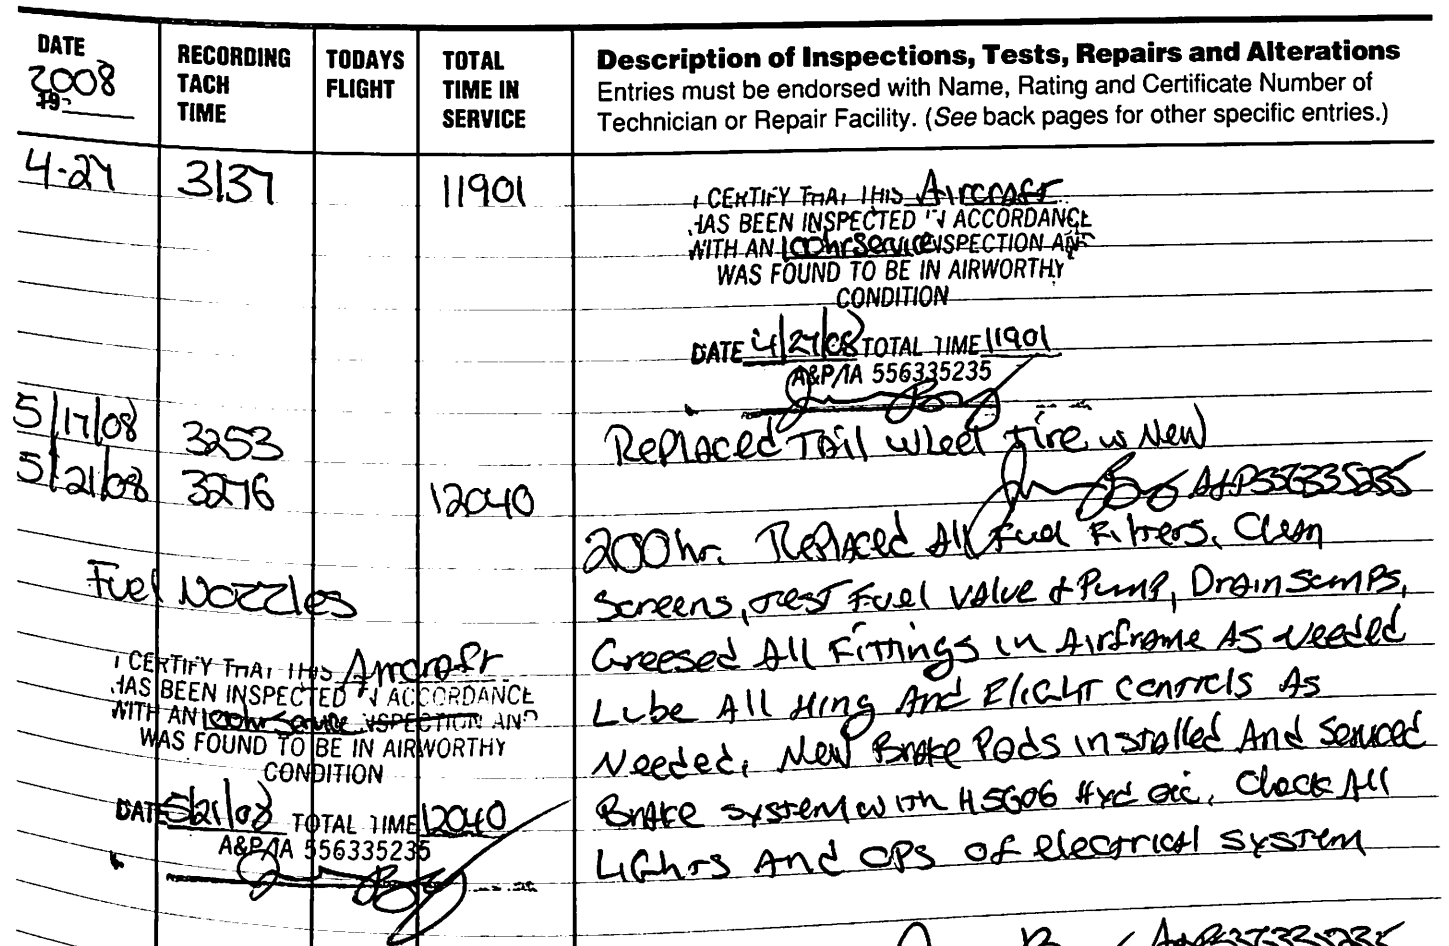 DATE
2008
19
RECORDING
TACH
TIME
TODAYS
FLIGHT
TOTAL
TIME IN
SERVICE
Description of Inspections, Tests, Repairs and Alterations
Entries must be endorsed with Name, Rating and Certificate Number of
Technician or Repair Facility. (See back pages for other specific entries.)
4-27 3137 11901
I CERTIFY THAT THIS Aircraft
HAS BEEN INSPECTED IN ACCORDANCE
WITH AN 100hr Service INSPECTION AND
WAS FOUND TO BE IN AIRWORTHY
CONDITION
DATE 4/27/08 TOTAL TIME 11901
A&P/IA 556335235
5/17/08 3253 Replaced Tail wheel tire w New
A&P556335235
5/21/08 3276 12040
200hr. Replaced All Fuel Filters, Clean
Fuel Nozzles
Screens, Test Fuel Valve & Pump, Drain Sumps,
Greesed All Fittings in Airframe As Needed
Lube All Hing And Flight Controls As
Needed, New Brake Pads installed And Serviced
Brake system with H5606 Hyd oil, Check All
Lights And OPS of electrical system
I CERTIFY THAT THIS Aircraft
HAS BEEN INSPECTED IN ACCORDANCE
WITH AN 100hr Service INSPECTION AND
WAS FOUND TO BE IN AIRWORTHY
CONDITION
DATE 5/21/08 TOTAL TIME 12040
A&P/IA 556335235